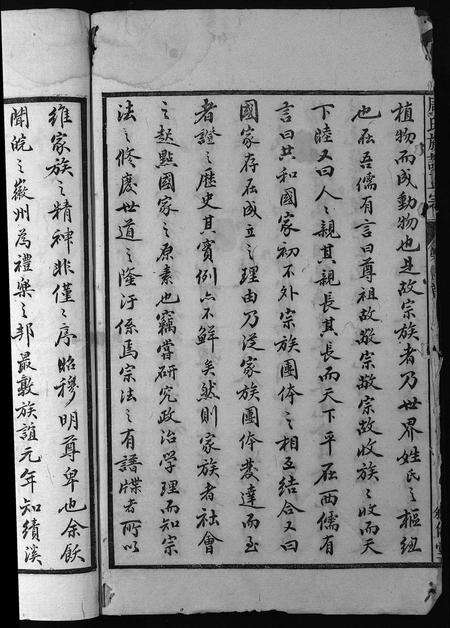 植物而成動物也是故宗族者乃世界姓氏之樞紐
也在吾儒有言曰尊祖故敬宗敬宗故收族之收而天
下睦又曰人之親其親長其長而天下平在西儒有
言曰共和國家初不外宗族團体之相互結合又曰
國家存在成立之理由乃從家族團体發達而至
者證之歷史其實例亦不鮮矣然則家族者社會
之起點國家之原素也竊嘗研究政治学理而知宗
法之修廢世道之隆汙係焉宗法之有譜牒者所以
維家族之精神非僅之序昭穆明尊卑也余飫
聞皖之徽州為禮樂之邦最敦族誼元年知績溪